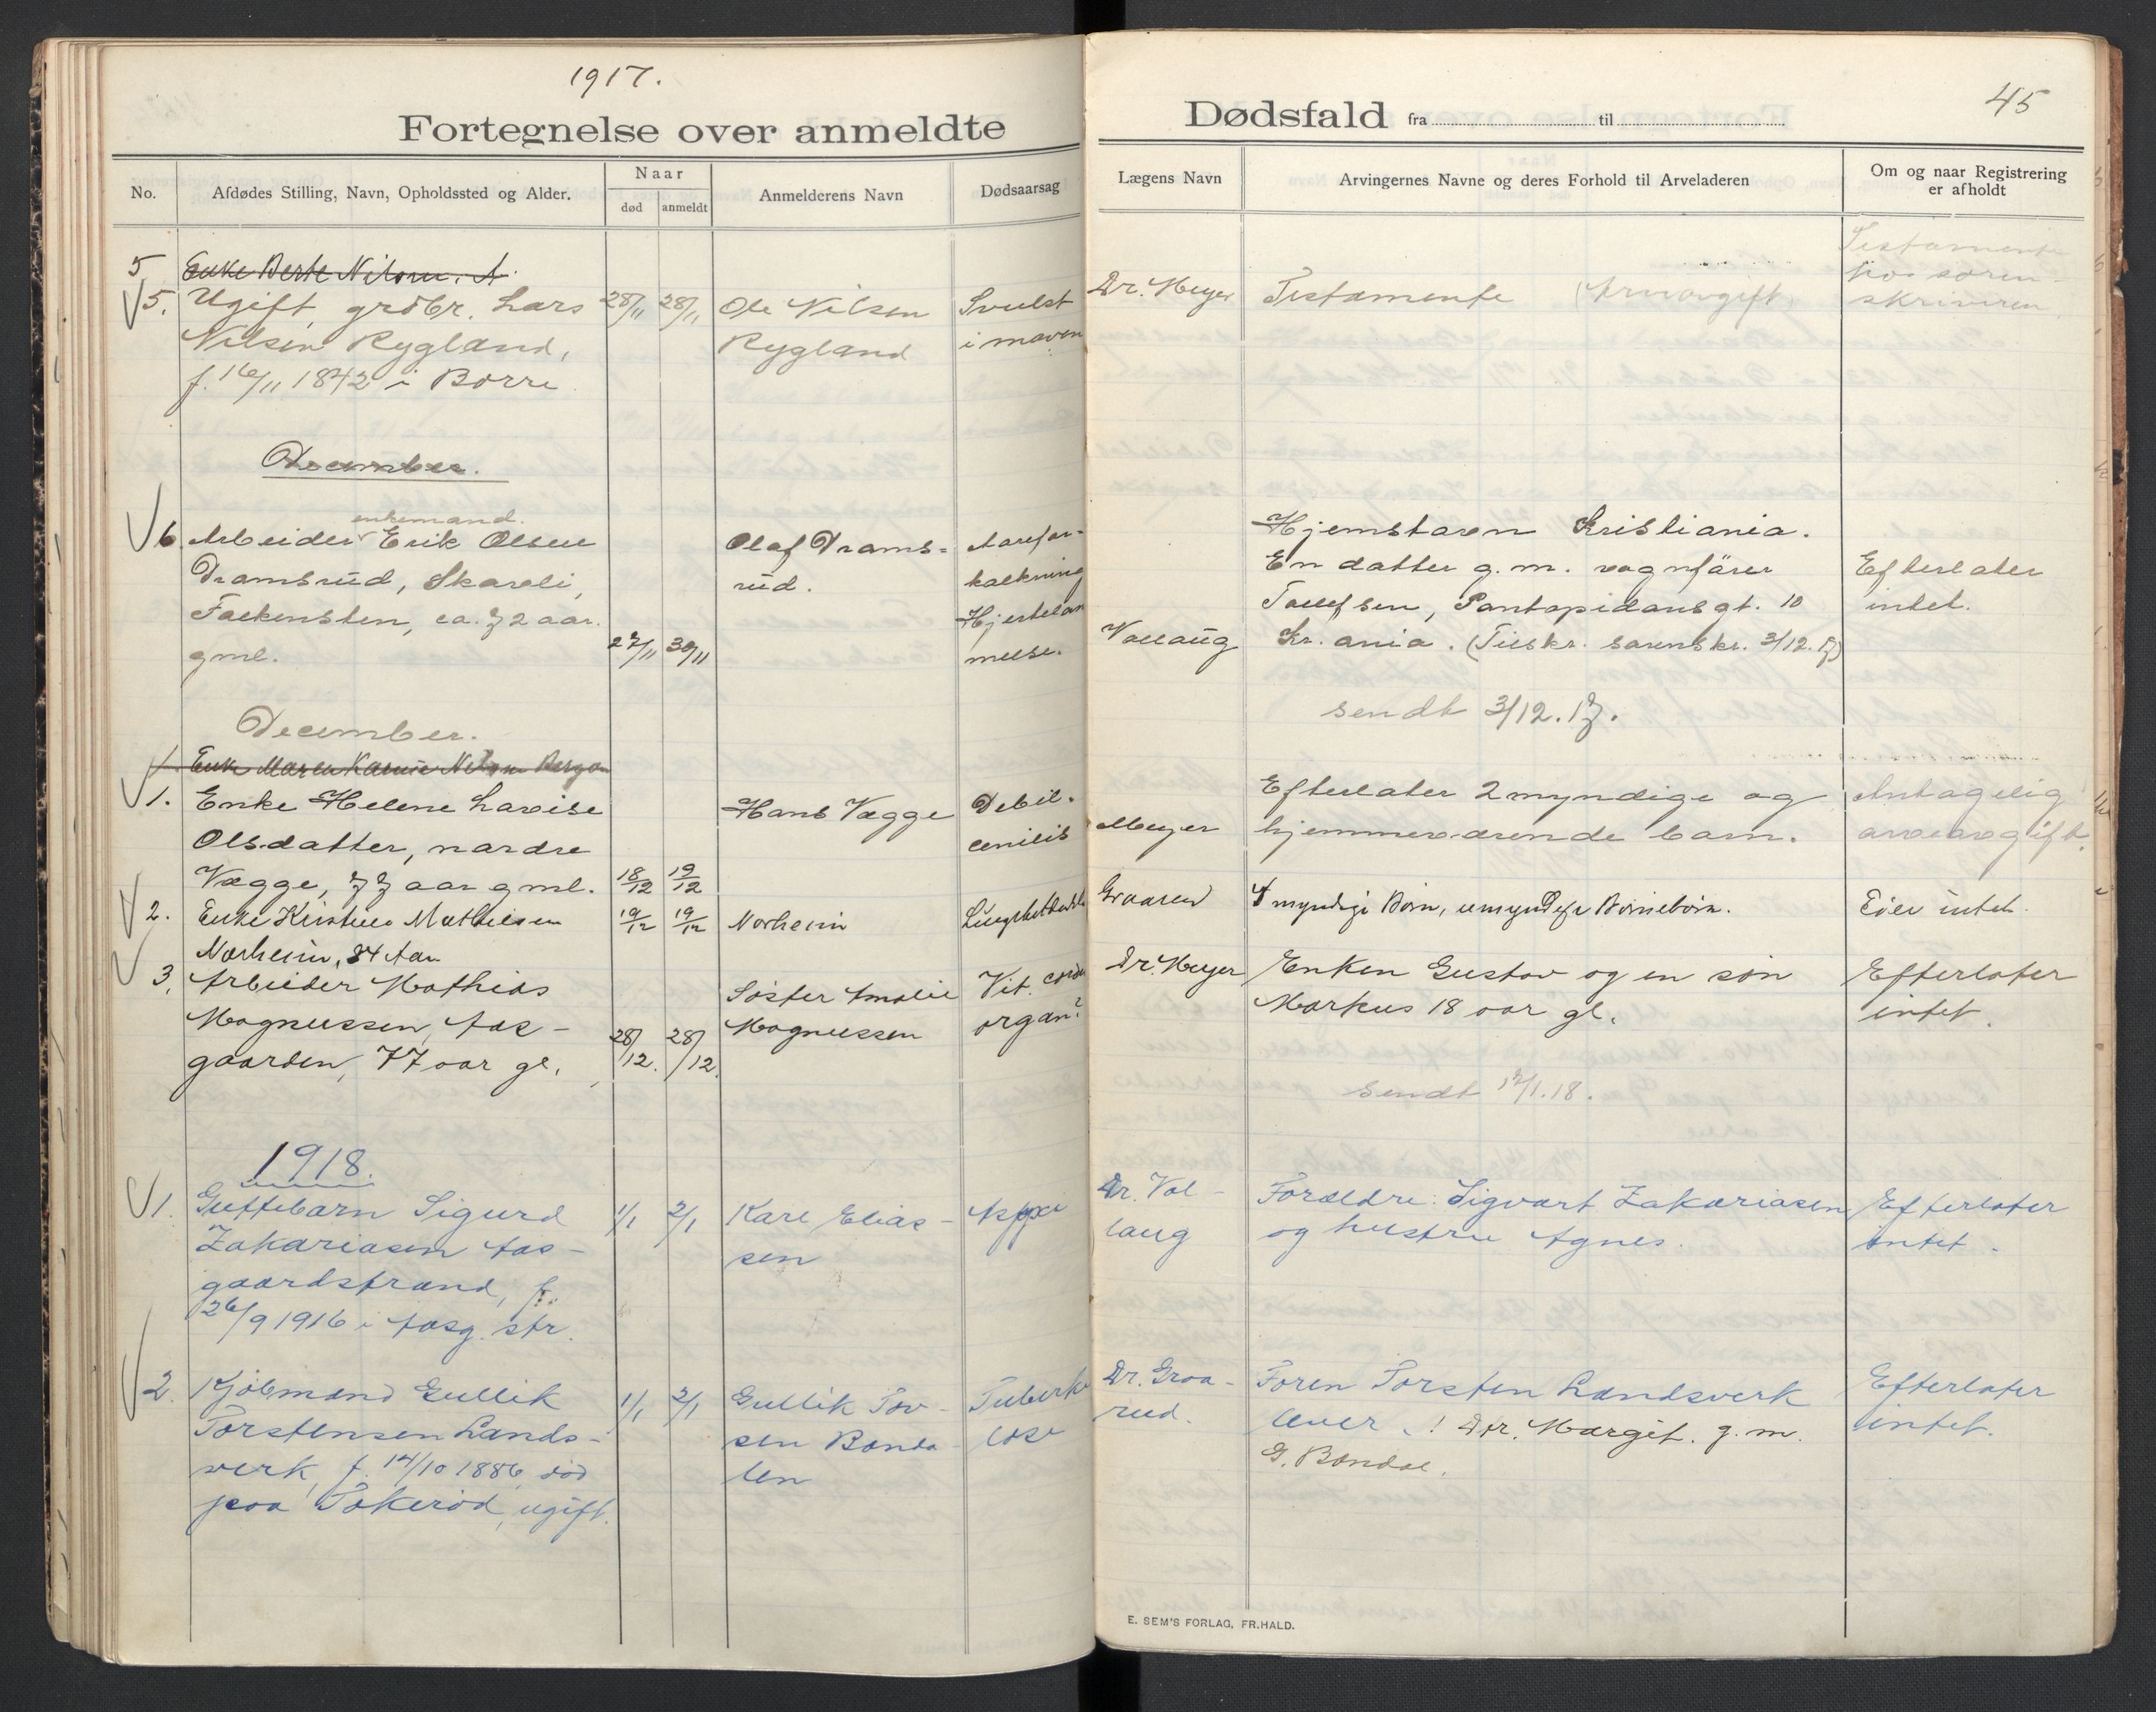 1917.
Fortegnelse over anmeldte
No.
Afdødes Stilling, Navn, Opholdssted og Alder.
Naar
død
anmeldt
Anmelderens Navn
Dødsaarsag
5 Enke Berte Nilsen. A.
5. Ugift grdbr. Lars 28/11 28/11 Ole Nilsen Svulst
Nilsen Rygland, Rygland i maven
f. 16/11 1842 i Borre
December.
enkemand.
6. Arbeider Erik Olsen Olaf Drams= Aarefor-
Dramsrud, Skareli, rud. kalkning
Falkensten, ca. 72 aar. Hjertelam
gml. 27/11 30/11 melse.
December.
1. Enke Maren Karine Nilsen
1. Enke Helene Lovise Hans Vægge Debil.
Olsdatter, nordre senilis
Vægge, 77 aar gml. 18/12 19/12
2. Enke Kirstine Mathisen 19/12 19/12 Norheim
Norheim, 84 Aar
3. Arbeider Mathias Søster Amalie Vit. cordis
Magnussen, Aas- 28/12. 28/12. Magnussen organ?
gaarden, 77 aar gl.
1918.
1. Guttebarn Sigurd 1/1 2/1 Karl Elias-
Zakariasen Aas- sen
gaardstrand, f.
26/9 1916 i Aasg. str.
2. Kjøbmand Gullik 1/1 2/1 Gullik Tov- Tuberku
Torstensen Lands- sen Bonda- lose
verk, f. 14/10 1886, død len
paa Tokerød, ugift.
Dødsfald fra til
45
Lægens Navn
Arvingernes Navne og deres Forhold til Arveladeren
Om og naar Registrering
er afholdt
Testamente
hos soren-
Dr. Meyer Testamente (Arveavgift) skriveren.
Hjemstavn Kristiania.
En datter g. m. vognfører Efterlater
Tollefsen, Pontopidansgt. 10 intet.
Vollaug Kr.ania. (Tilskr. sorenskr. 3/12.17)
sendt 3/12.17.
Efterlater 2 myndige og Antagelig
Meyer hjemmeværende barn. arveavgift.
Graarud 4 myndige Børn, umyndige Børnebørn. Eier intet.
Dr. Meyer Enken Gustav og en søn Efterlater
Markus 18 aar gl. intet.
sendt 17/1.18.
Dr. Vol- Forældre: Sigvart Zakariasen Efterlater
laug og hustru Agnes. intet.
Dr. Graa- Faren Torsten Landsverk Efterlater
rud. lever. ! Dtr. Margit. g. m. intet.
G. Bondal.
E. SEM'S FORLAG, FR.HALD.